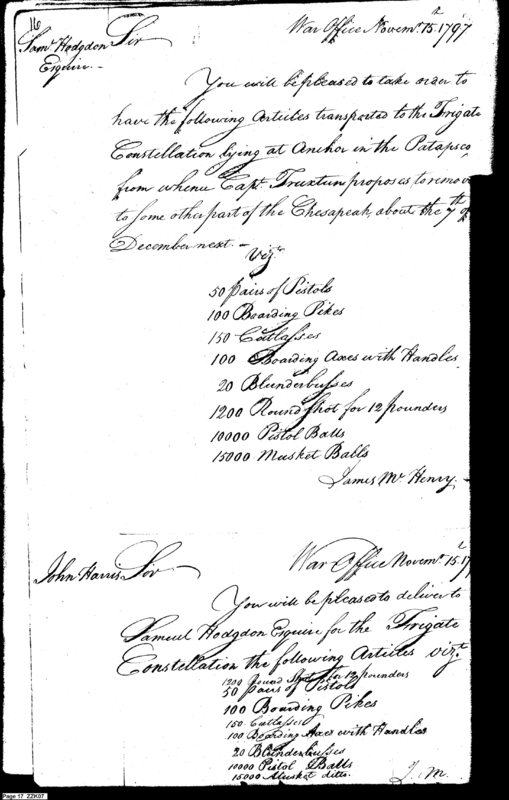 16
War Office Novemr. 15th. 1797
Saml. Hodgdon
Esquire.
Sir
You will be pleased to take order to
have the following Articles transported to the Frigate
Constellation lying at Anchor in the Patapsco,
from whence Capt. Truxtun proposes, to remove
to some other part of the Chesapeak, about the 7th of
December next. –
Vizt.
50 pairs of Pistols
100 Boarding Pikes
150 Cutlasses
100 Boarding Axes with Handles
20 Blunderbusses
1200 Round Shot for 12 pounders
10000 Pistol Balls
15000 Musket Balls
James Mc. Henry.
War Office Novemr. 15th. 17
John Harris Sir
You will be pleased to deliver to
Samuel Hodgdon Esquire for the Frigate
Constellation the following Articles vizt.
1200 Round Shot for 12 pounders
50 pairs of Pistols
100 Boarding Pikes
150 Cutlasses
100 Boarding Axes with Handles
20 Blunderbusses
10000 Pistol Balls
15000 Musket ditto.
J. M.
Page 17 ZZK07